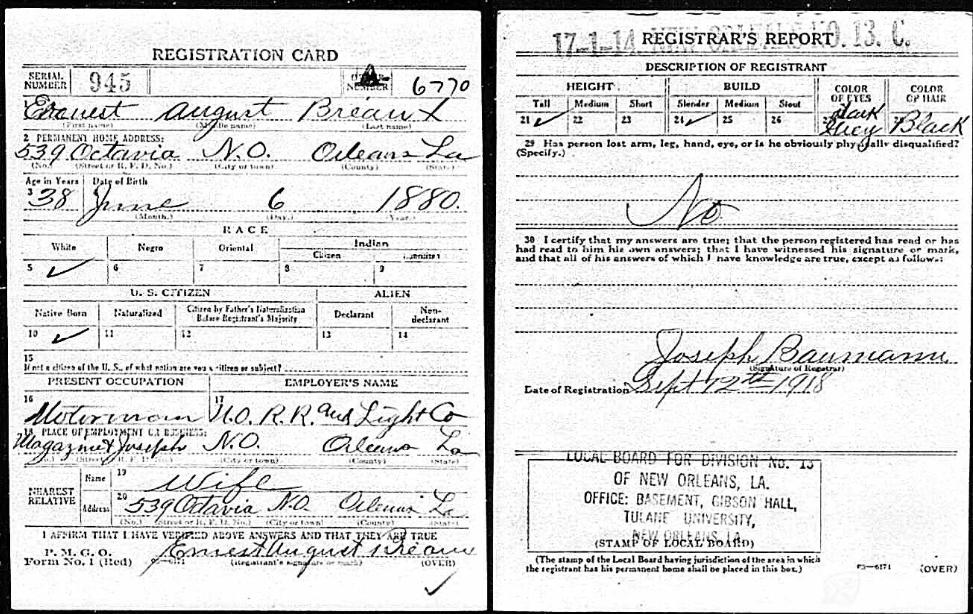 REGISTRATION CARD
SERIAL NUMBER 945 ORDER NUMBER A 6770
Ernest August Breaux
(First name) (Middle name) (Last name)
2 PERMANENT HOME ADDRESS:
539 Octavia N.O. Orleans La
(No.) (Street or R. F. D. No.) (City or town) (County) (State)
Age in Years Date of Birth
3 38 June 6 1880.
(Month.) (Day.) (Year.)
RACE
White Negro Oriental Indian
Citizen
5 ✓ 6 7 8 9
U. S. CITIZEN ALIEN
Native Born Naturalized Citizen by Father's Naturalization Before Registrant's Majority Declarant Non-declarant
10 ✓ 11 12 13 14
15
If not a citizen of the U. S., of what nation are you a citizen or subject?
PRESENT OCCUPATION EMPLOYER'S NAME
16 Motorman 17 N.O. R.R. and Light Co
18 PLACE OF EMPLOYMENT OR BUSINESS:
Magazine & Joseph N.O. Orleans La
(No.) (Street or R. F. D. No.) (City or town) (County) (State)
NEAREST RELATIVE
Name 19 Wife
Address 20 539 Octavia N.O. Orleans La
(No.) (Street or R. F. D. No.) (City or town) (County) (State)
I AFFIRM THAT I HAVE VERIFIED ABOVE ANSWERS AND THAT THEY ARE TRUE
P. M. G. O.
Form No. 1 (Red) Ernest August Breaux
(Registrant's signature or mark) (OVER)
✓
17-1-14. NEW ORLEANS NO. 13. C.
REGISTRAR'S REPORT
DESCRIPTION OF REGISTRANT
HEIGHT BUILD COLOR OF EYES COLOR OF HAIR
Tall Medium Short Slender Medium Stout
21 ✓ 22 23 24 ✓ 25 26 Black
29 Has person lost arm, leg, hand, eye, or is he obviously physically disqualified?
(Specify.)
No
30 I certify that my answers are true; that the person registered has read or has
had read to him his own answers; that I have witnessed his signature or mark,
and that all of his answers of which I have knowledge are true, except as follows:
Joseph Baumann
(Signature of Registrar)
Date of Registration Sept 12th 1918
LOCAL BOARD FOR DIVISION No. 13
OF NEW ORLEANS, LA.
OFFICE: BASEMENT, GIBSON HALL,
TULANE UNIVERSITY,
NEW ORLEANS, LA.
(STAMP OF LOCAL BOARD)
(The stamp of the Local Board having jurisdiction of the area in which
the registrant has his permanent home shall be placed in this box.)
03—6171 (OVER)